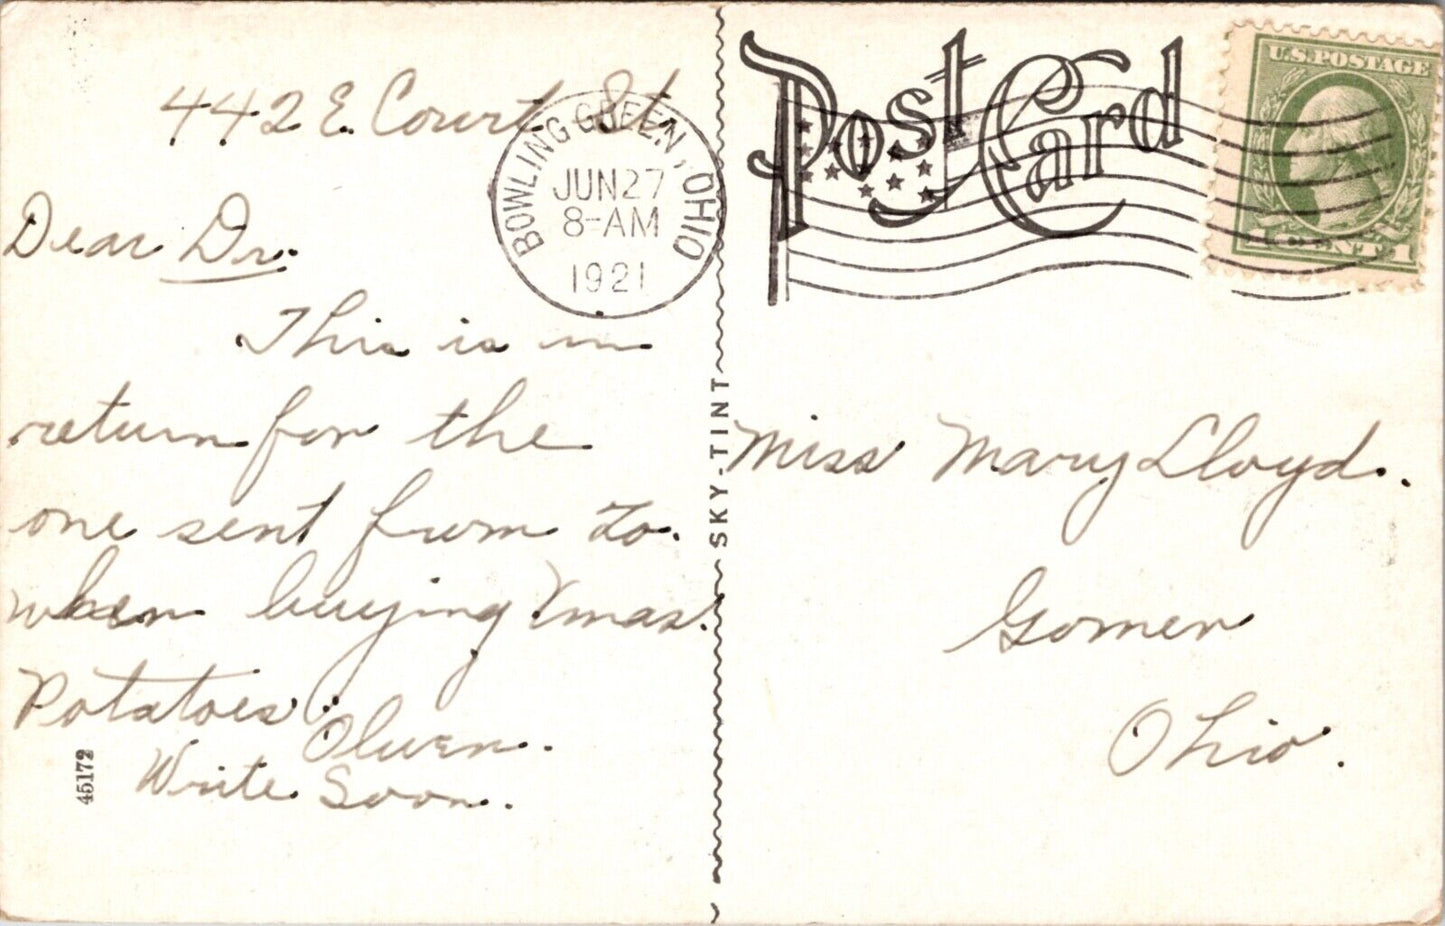 442 E. Court St.
Dear Dr.
This is in
return for the
one sent from To.
when buying Xmas.
Potatoes.
Olwen.
Write Soon.
45172
BOWLING GREEN, OHIO
JUN 27
8-AM
1921
SKY-TINT
Post Card
U.S. POSTAGE
1 CENT 1
Miss Mary Lloyd.
Gomer
Ohio.